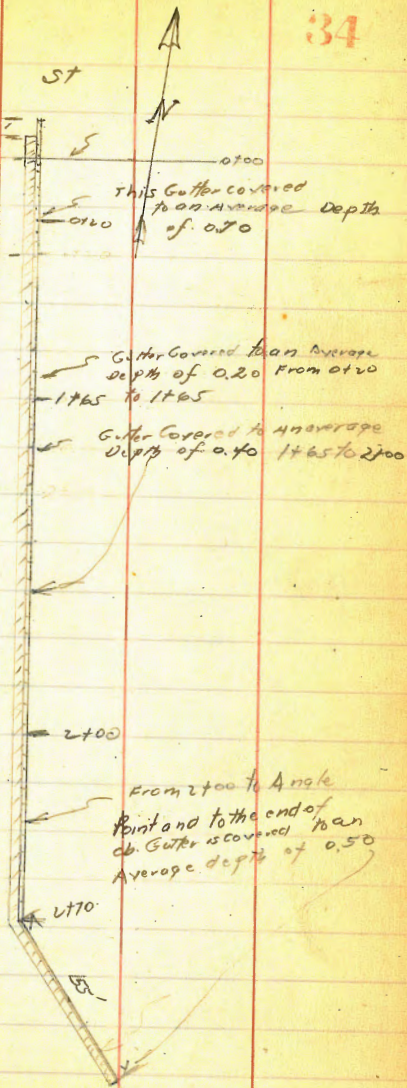 34
St
N
0+00
This Gutter covered
to an Average Depth
0+20 of 0.70
Gutter Covered to an Average
Depth of 0.20 From 0+20
1+65 to 1+65
Gutter Covered to An average
Depth of 0.40 1+65 to 2+00
2+00
From 2+00 to Angle
Point and to the end of
cb. Gutter is covered to an
Average depth of 0.50
2+70